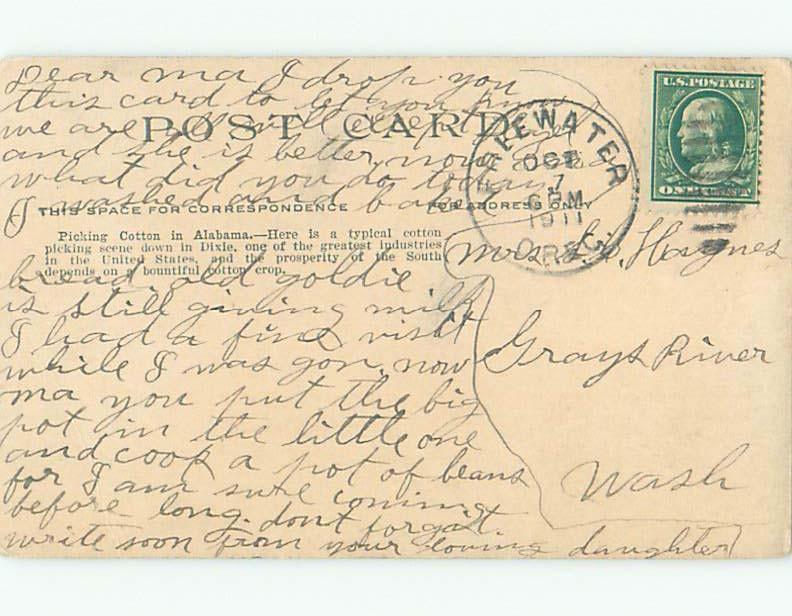 Dear ma I drop you
this card to let you know
we are all well except
POST CARD
and she is better now
what did you do today
I washed and baked
THIS SPACE FOR CORRESPONDENCE
FOR ADDRESS ONLY
Picking Cotton in Alabama.—Here is a typical cotton
picking scene down in Dixie, one of the greatest industries
in the United States, and the prosperity of the South
depends on a bountiful cotton crop.
bread old goldie
is still giving milk
I had a fine visit
while I was gon. now
ma you put the big
pot in the little one
and cook a pot of beans
for I am sure coming
before long. dont forgat
write soon from your loving daughter
FREEWATER
OCT
7
PM
1911
OREG.
U.S. POSTAGE
ONE CENT
Mrs Haynes
Grays River
Wash